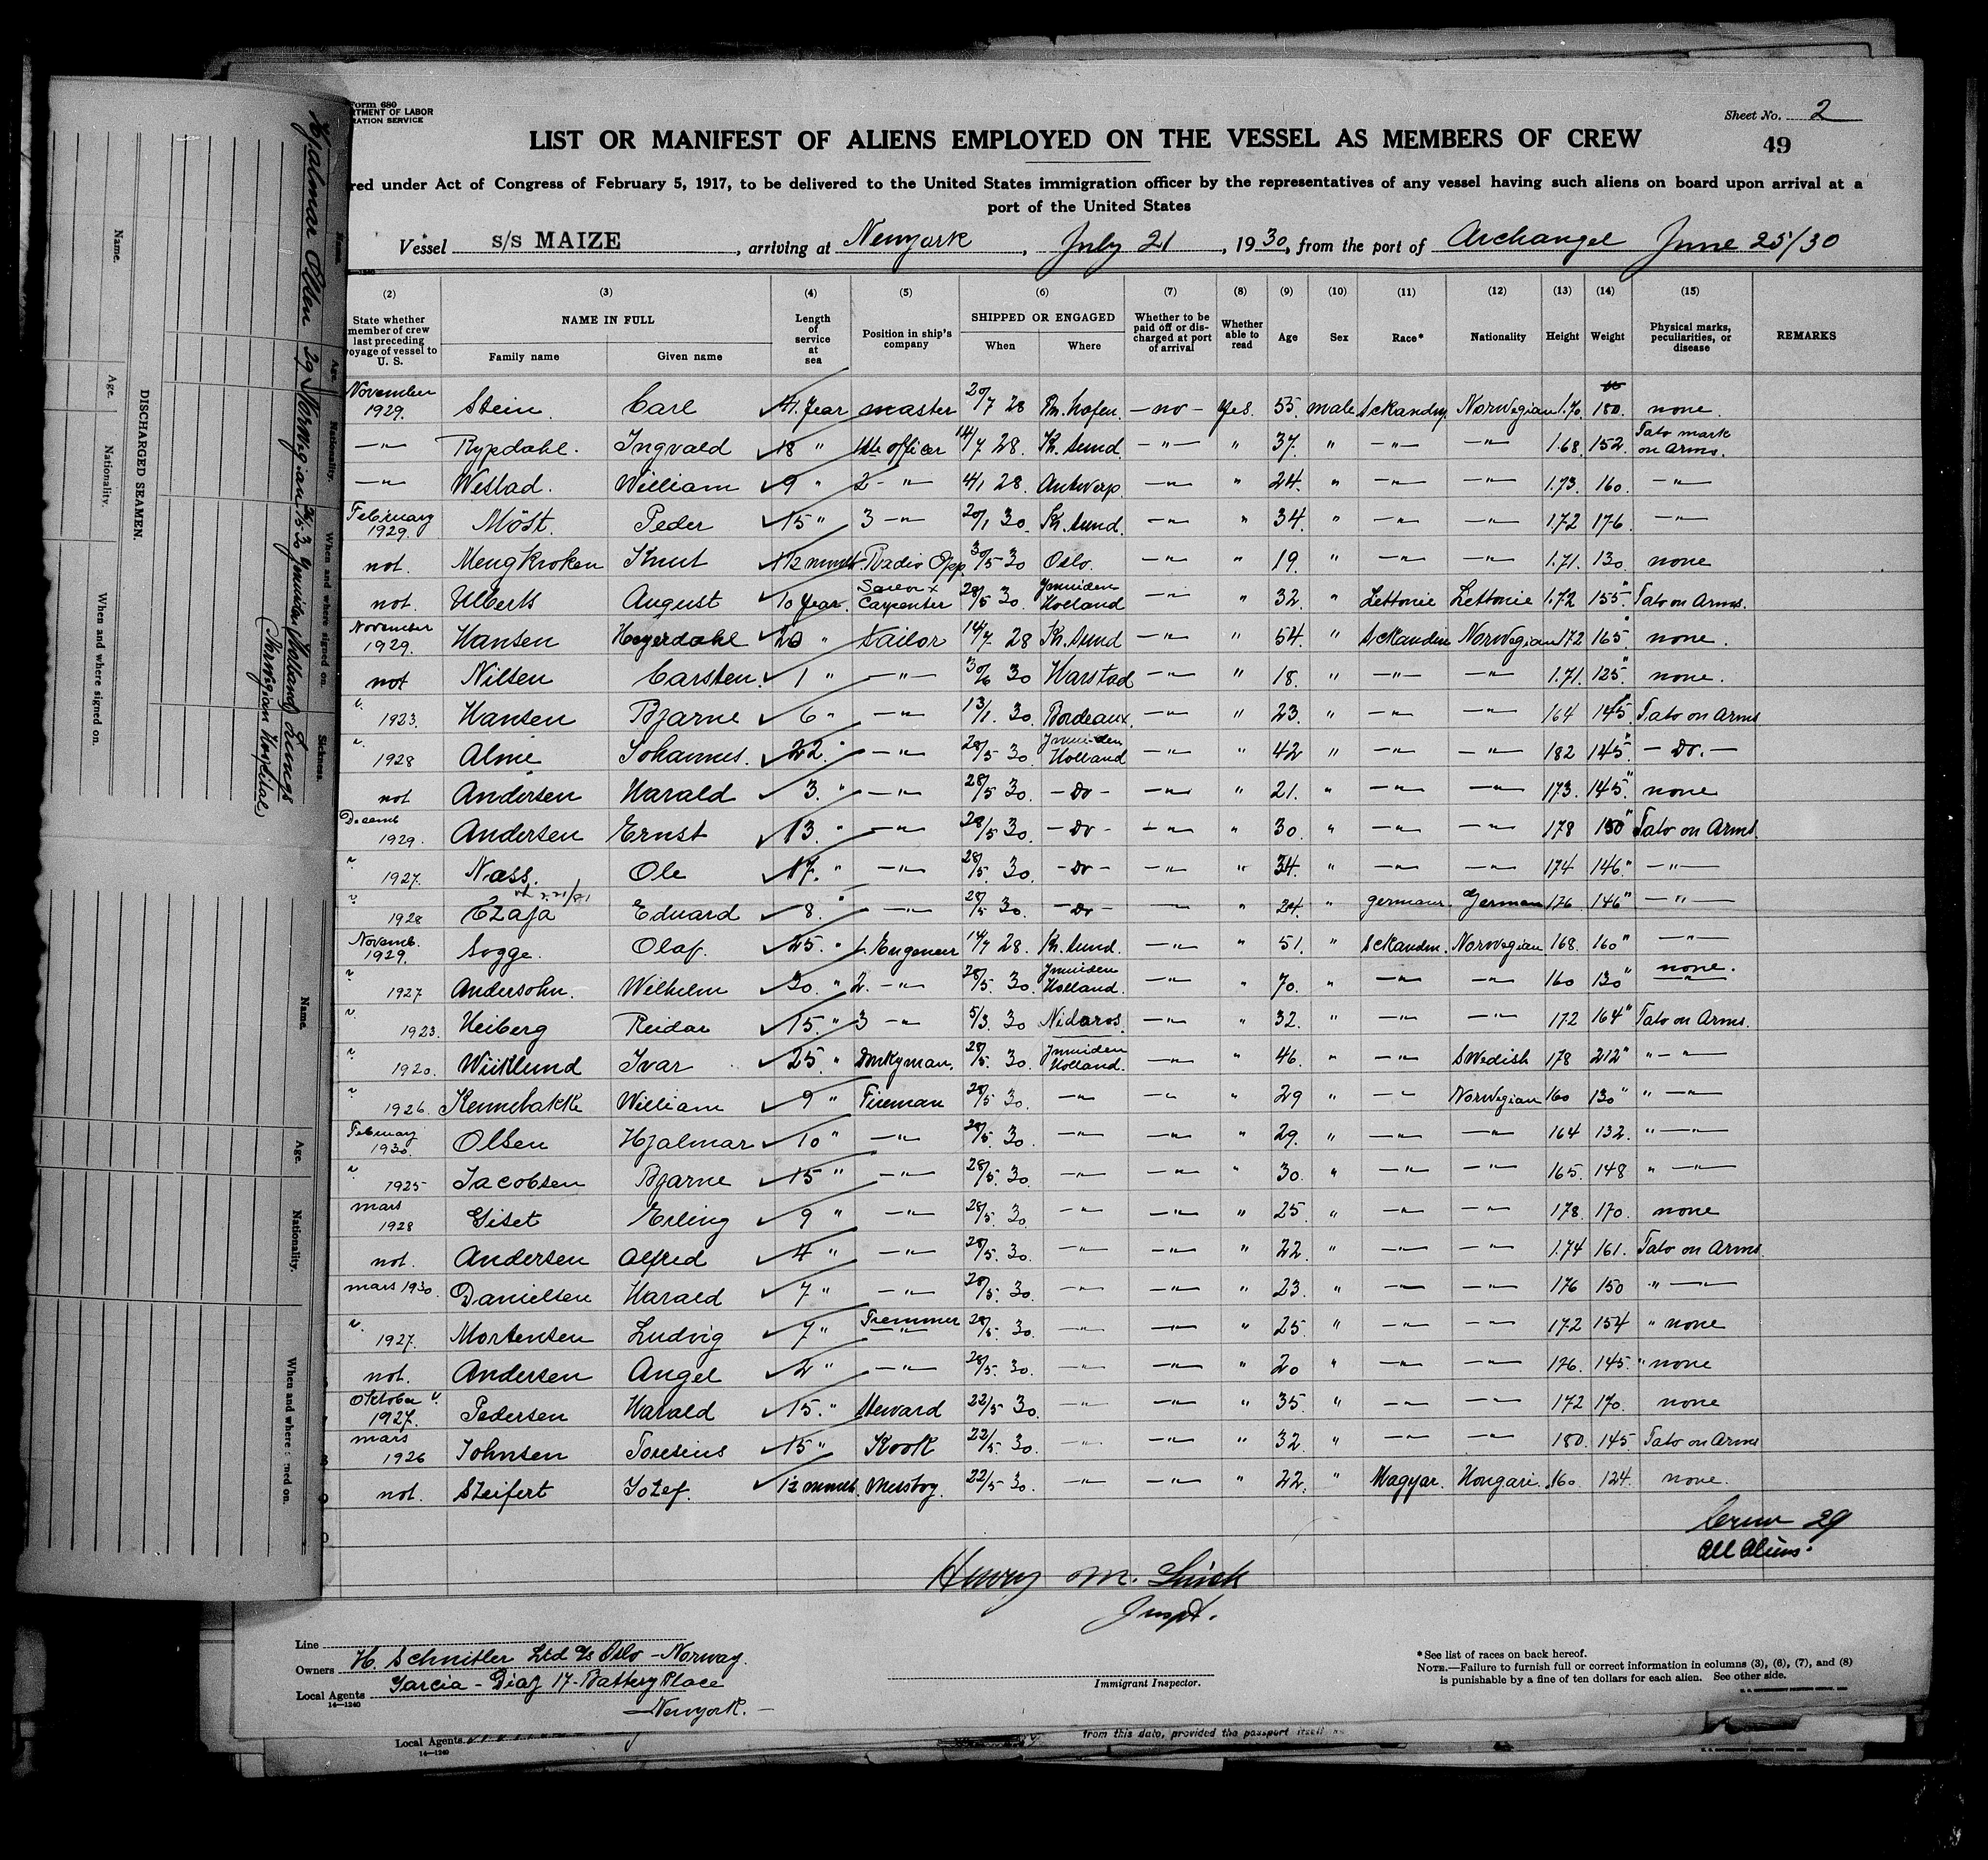 Form 680
RTMENT OF LABOR
RATION SERVICE
Sheet No. 2
LIST OR MANIFEST OF ALIENS EMPLOYED ON THE VESSEL AS MEMBERS OF CREW
49
red under Act of Congress of February 5, 1917, to be delivered to the United States immigration officer by the representatives of any vessel having such aliens on board upon arrival at a
port of the United States
Vessel s/s MAIZE, arriving at Newyork, July 21, 1930, from the port of Archangel June 25/30
(2) (3) (4) (5) (6) (7) (8) (9) (10) (11) (12) (13) (14) (15)
State whether member of crew last preceding voyage of vessel to U. S. NAME IN FULL Family name Given name Length of service at sea Position in ship's company SHIPPED OR ENGAGED When Where Whether to be paid off or discharged at port of arrival Whether able to read Age Sex Race* Nationality Height Weight Physical marks, peculiarities, or disease REMARKS
November 1929. Stein. Carl 41. Year master 20/7 28 no yes. 55. male Norwegian 1.70 180. none.
—"— Rypdahl. Ingvald 18 " 1ste officer 14/7 28. Kr. sund. —"— " 37. " —"— —"— 1.68. 152. Tato mark on Arms.
—"— Westad. William 9 " 2 —"— 4/1 28. Antwerp. —"— " 24. " —"— —"— 1.73. 160. —"—
February 1929. Möst. Peder 15 " 3 —"— 20/1 30. Kr. sund. —"— " 34. " —"— —"— 1.72 176. —"—
not. Mengkroken Knut Radio Opp. 30/5 30 Oslo. —"— " 19. " —"— —"— 1.71. 130. none
not. Ulberts August 10 Year. Carpenter 28/5 30. Ymuiden Holland —"— " 32. " Lettonie Lettonie 1.72 155" Tato on Arms.
November 1929. Hansen Heyerdahl 20 " Sailor 14/7 28 Kr. sund —"— " 54. " Sckandin Norwegian 172 165" none.
not Nilsen Carsten. 1 " —"— 30/6 30 Harstad —"— " 18. " —"— —"— 1.71. 125" none.
" 1923. Hansen Bjarne 6 " —"— 13/1. 30. Bordeaux. —"— " 23. " —"— —"— 164 145 Tato on Arms
" 1928 Alme Johannes. 22. " —"— 28/5 30. Ymuiden Holland —"— " 42 " —"— —"— 182 145" — do. —
not Andersen Harald 3. " —"— 28/5 30. — do — —"— " 21. " —"— —"— 173. 145" none
Decemb 1929. Andersen Ernst 13. " —"— 28/5 30. — do — —"— " 30. " —"— —"— 178 150" Tato on Arms.
" 1927. Nass. Ole 17. " —"— 28/5. 30. — do — —"— " 34. " —"— —"— 174 146" —"—
" 1928 Czaja Eduard 8. " —"— 28/5 30. — do — —"— " 24. " German 176 146" —"—
Novemb. 1929. Sogge. Olaf. 25. " 1. Engeneer 14/7 28. Kr. sund. —"— " 51. " Sckandin. Norwegian 168. 160" —"—
" 1927 Andersohn. Wilhelm 30. " 2. —"— 28/5 30. Ymuiden Holland. —"— " 70. " —"— —"— 160 130" none.
" 1923. Heiberg Reidar 15. " 3 —"— 5/3. 30 Nidaros. —"— " 32. " —"— —"— 172 164" Tato on Arms.
" 1920. Wiiklund Ivar 25. " Donkyman. 28/5. 30. Ymuiden Holland. —"— " 46. " —"— Swedish 178 212" " —"—
" 1926. Kennebakke William 9 " Fireman 28/5 30. —"— —"— " 29 " —"— Norwegian 160 130" " —"—
February 1930. Olsen Hjalmar 10 " —"— 28/5. 30. —"— —"— " 29. " —"— —"— 164 132. " —"—
" 1925 Jacobsen Bjarne 15 " —"— 28/5. 30. —"— —"— " 30. " —"— —"— 165. 148 " —"—
mars 1928 Giset Erling 9 " —"— 28/5. 30. —"— —"— " 25. " —"— —"— 178. 170. none
not. Andersen Alfred 4 " —"— 28/5. 30. —"— —"— " 22. " —"— —"— 1.74 161. Tato on Arms.
mars 1930. Danielsen Harald 7 " —"— 28/5. 30. —"— —"— " 23. " —"— —"— 176 150 " —"—
" 1927. Mortensen Ludvig 7 " Tremmer 28/5. 30. —"— —"— " 25. " —"— —"— 172 154 " none
not. Andersen Angel 2 " —"— 28/5. 30. —"— —"— " 20 " —"— —"— 176. 145. " none
Oktober 1927. Pedersen Harald 15. " Steward 22/5 30. —"— —"— " 35. " —"— —"— 172 170. none
mars 1926 Johnsen 15 " Kook 22/5. 30. —"— —"— " 32. " —"— —"— 180. 145. Tato on Arms
not. Steifert Jozef. Messboy. 22/5 30. —"— —"— " 22. " Magyar. Hongari. 160 124. none.
Crew 29
All Aliens.
Henry M.
Inspt.
Line
Owners H. Schnitler Ltd a/s Oslo – Norway.
Local Agents Garcia – Diaz 17 – Battery Place
14—1240
Newyork. –
Immigrant Inspector.
*See list of races on back hereof.
NOTE.—Failure to furnish full or correct information in columns (3), (6), (7), and (8)
is punishable by a fine of ten dollars for each alien. See other side.
Local Agents
14—1240
from this date, provided the passport itself
DISCHARGED SEAMEN.
Name. Age. Nationality. When and where signed on.
Name. Age. Nationality. When and where signed on. Sickness.
Hjalmar Olsen 29 Norwegian Ymuiden Holland Lungs
(Norwegian Hospital)
Name. Age. Nationality. When and where signed on.